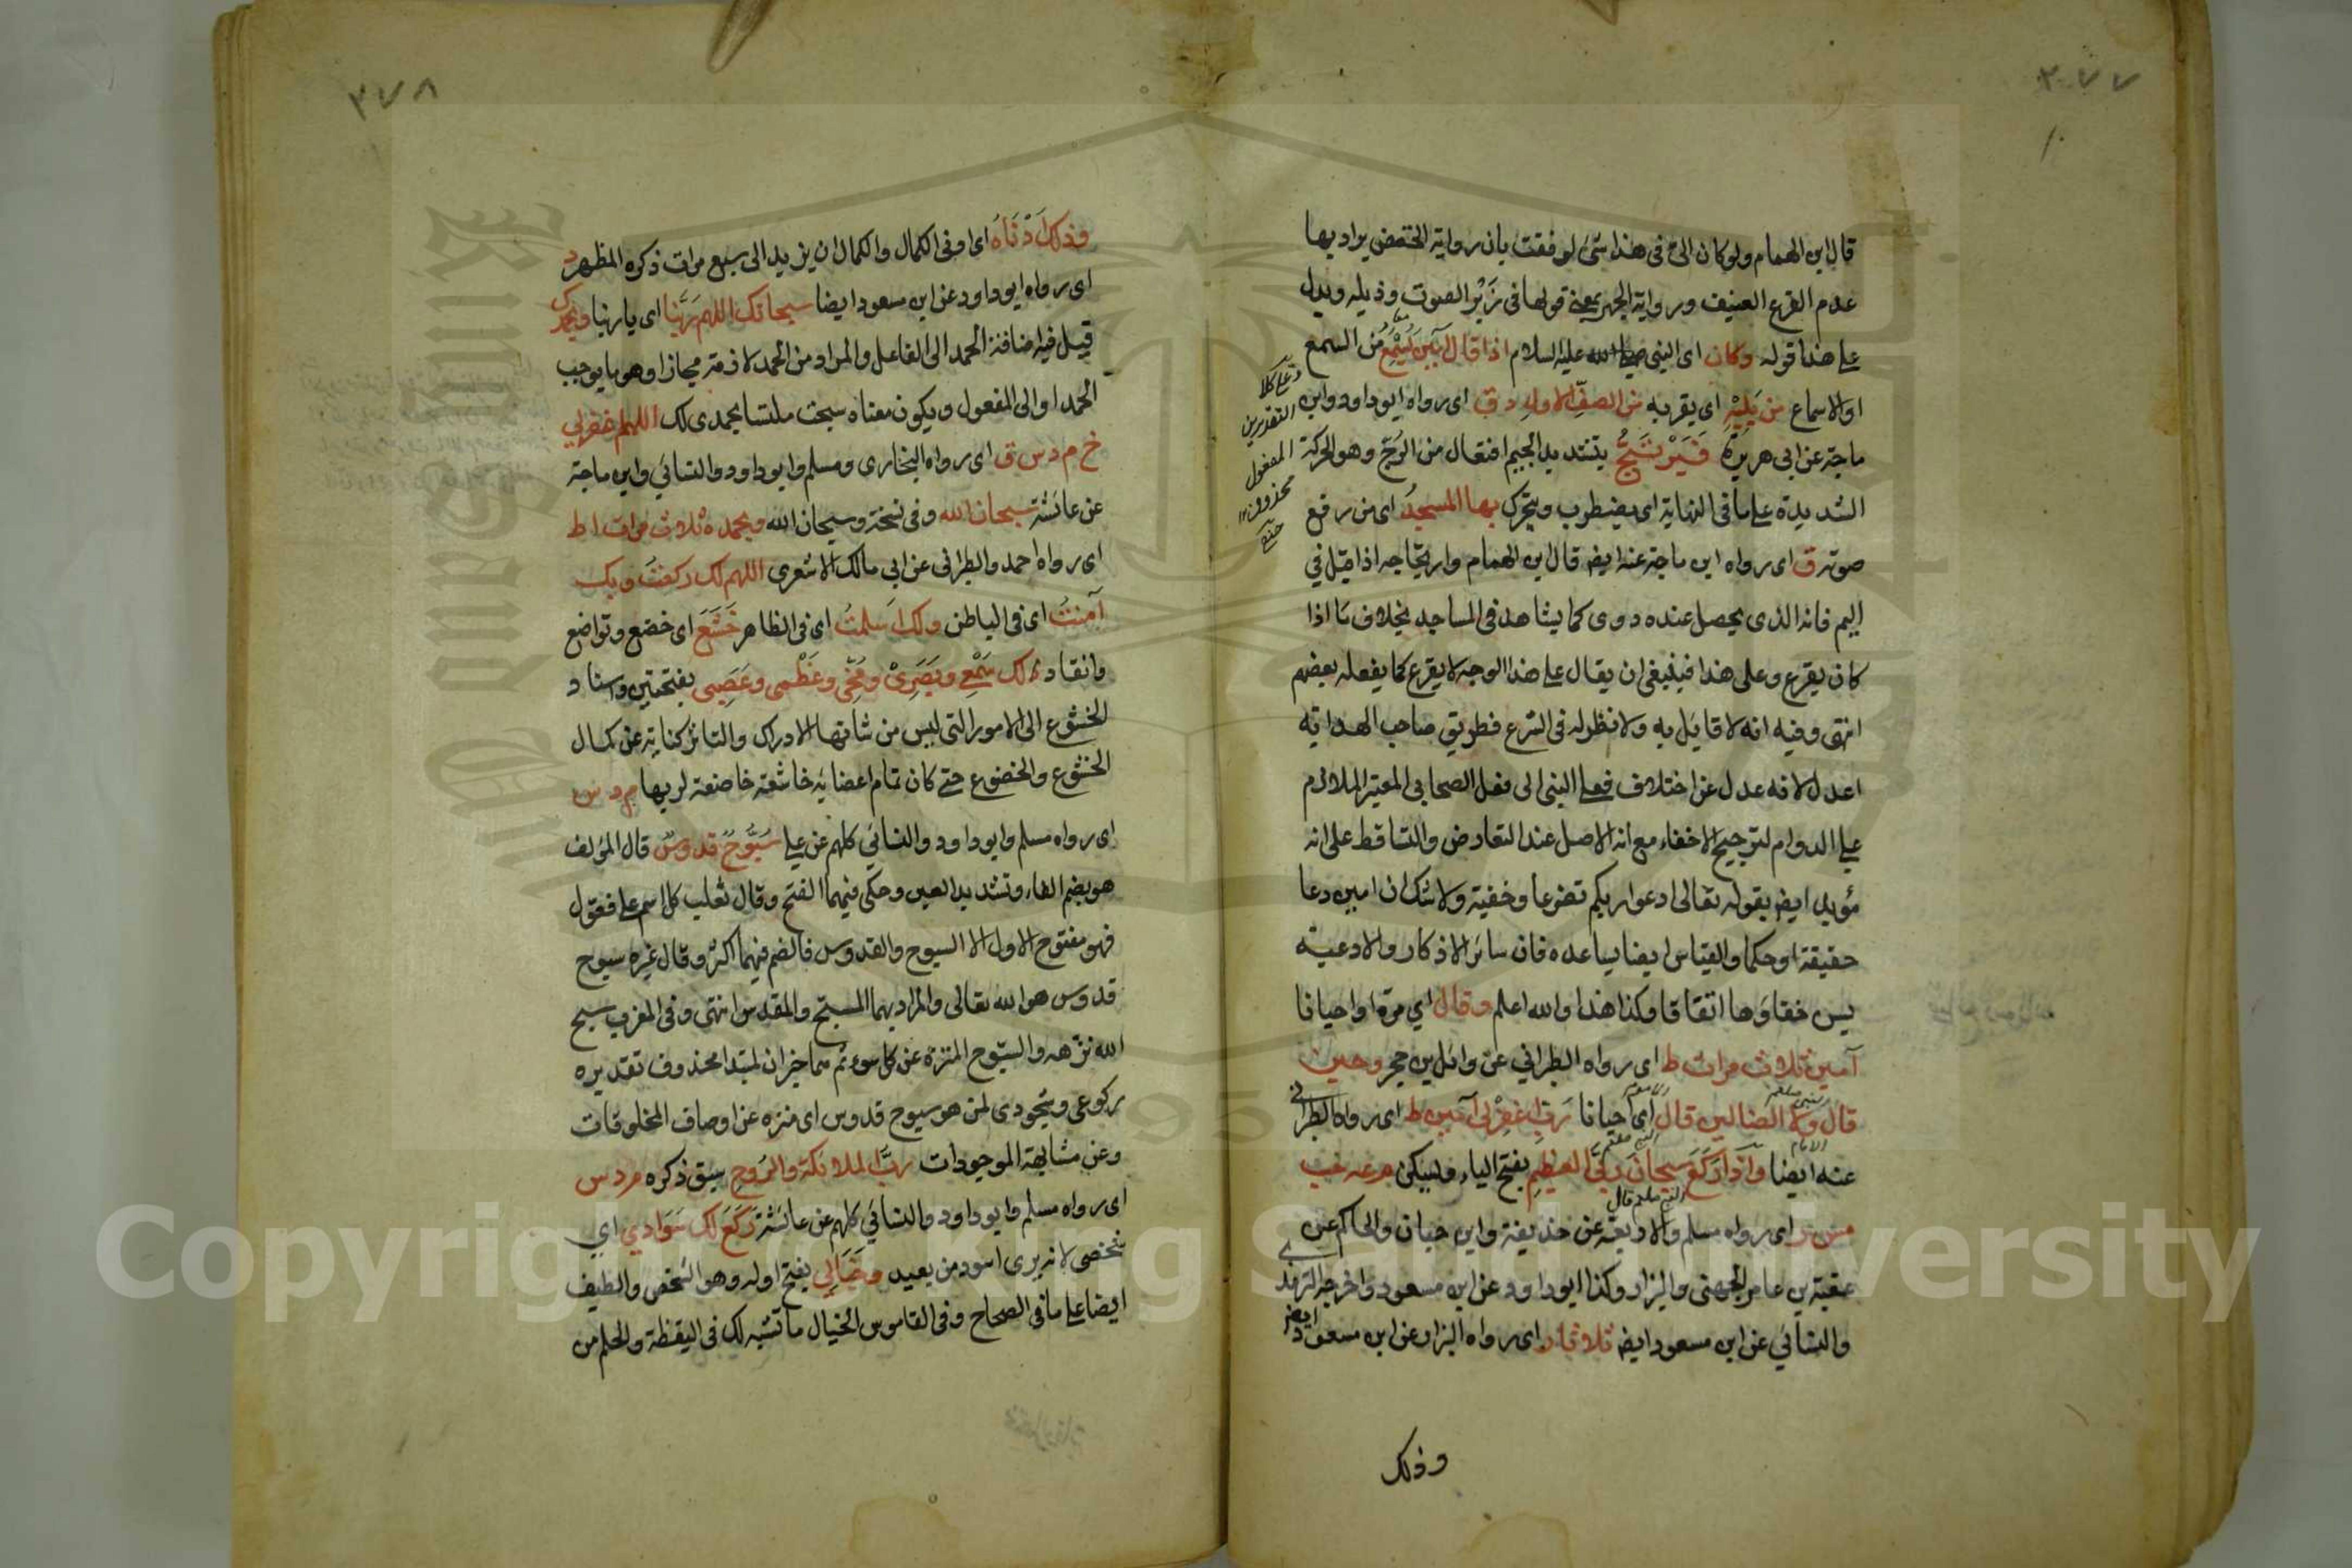 ٣٧٧
قال ابن الهمام ولو كان الى فى هذا شئ لوفقت بان رواية الخفض يراد بها
عدم القرع العنيف ورواية الجهر بمعنى قولها فى زبر الصوت وذيله ويدل
على هذا قوله وكان اى النبى عليه السلام اذا قال آمين يسمع من السمع
او الاسماع من يليه اى يقربه من الصف الاول د ق اى رواه ابو داود وابن
ماجة عن ابى هريرة فيرتج بتشديد الجيم افتعال من الرج وهو الحركة
الشديدة على ما فى النهاية اى يضطرب ويتحرك بها المسجد اى من رفع
صوته ق اى رواه ابن ماجة عنه ايض قال ابن الهمام وارتجاجه اذا قيل فى
اليم فانه الذى يحصل عنده دوى كما يشاهد فى المساجد بخلاف ما اذا
كان يقرع وعلى هذا فينبغى ان يقال على هذا الوجه لا يقرع كما يفعله بعضهم
انتهى وفيه انه لا قايل به ولا نظير له فى الشرع فطريق صاحب الهداية
اعدل لانه عدل عن اختلاف فعل النبى الى فعل الصحابى المعتبر الملازم
على الدوام لترجيح الاخفاء مع انه الاصل عند التعارض والتساقط على انه
مؤيد ايض بقوله تعالى ادعوا ربكم تضرعا وخفية ولا شك ان امين دعا
حقيقة او حكما والقياس ايضا يساعده فان سائر الاذكار والادعية
يسن خفاؤها اتفاقا فكذا هذا والله اعلم وقال اي مرة او احيانا
آمين ثلاث مرات ط اى رواه الطبراني عن وائل بن حجر وحين
قال ولا الضالين قال اى احيانا رب اغفر لى آمين ط اى رواه الطبرانى
عنه ايضا واذا ركع سبحان ربى العظيم بفتح الياء ويسكن م عه حب
مس ر اى رواه مسلم والاربعة عن حذيفة وابن حبان والحاكم عن
عقبة بن عامر الجهنى والبزار وكذا ابو داود عن ابن مسعود واخرجه الترمذى
والنسائي عن ابن مسعود ايض ثلاثا ر اى رواه البزار عن ابن مسعود ايض
وذلك
على كلا
التقديرين
المفعول
محذوف
٣٧٨
وذلك ادناه اى ادنى الكمال والكمال ان يزيد الى سبع مرات ذكره المظهر د
اى رواه ابو داود عن ابن مسعود ايضا سبحانك اللهم ربنا اى يا ربنا وبحمدك
قيل فيه اضافة الحمد الى الفاعل والمراد من الحمد لازمه مجازا وهو ما يوجب
الحمد او الى المفعول ويكون معناه سبحت ملتبسا بحمدى لك اللهم اغفر لي
خ م د س ق اى رواه البخارى ومسلم وابو داود والنسائي وابن ماجة
عن عائشة سبحان الله وفى نسخة وسبحان الله وبحمده ثلاث مرات ا ط
اى رواه احمد والطبرانى عن ابى مالك الاشعرى اللهم لك ركعت وبك
آمنت اى فى الباطن ولك اسلمت اى فى الظاهر خشع اى خضع وتواضع
وانقاد لك سمعى وبصرى ومخى وعظمى وعصبى بفتحتين واسناد
الخشوع الى الامور التى ليس من شانها الادراك والتاثر كناية عن كمال
الخشوع والخضوع حتى كان تمام اعضايه خاشعة خاضعة لربها م د س
اى رواه مسلم وابو داود والنسائي كلهم عن على سبوح قدوس قال المؤلف
هو بضم الفاء وتشديد العين وحكى فيهما الفتح وقال ثعلب كل اسم على فعول
فهو مفتوح الاول الا السبوح والقدوس فالضم فيهما اكثر وقال غيره سبوح
قدوس هو الله تعالى والمراد بهما المسبح والمقدس انتهى وفى المغرب سبح
الله نزهه والسبوح المنزه عن كل سوء ثم هما خبران لمبتدا محذوف تقديره
ركوعى وسجودى لمن هو سبوح قدوس اى منزه عن اوصاف المخلوقات
وعن مشابهة الموجودات رب الملائكة والروح سبق ذكره م د س
اى رواه مسلم وابو داود والنسائي كلهم عن عائشة ركع لك سوادي اي
شخصى لانه يرى اسود من بعيد وخيالى بفتح اوله وهو الشخص والطيف
ايضا على ما فى الصحاح وفى القاموس الخيال ما تشبه لك فى اليقظة والحلم من
Copyright © King Saud University